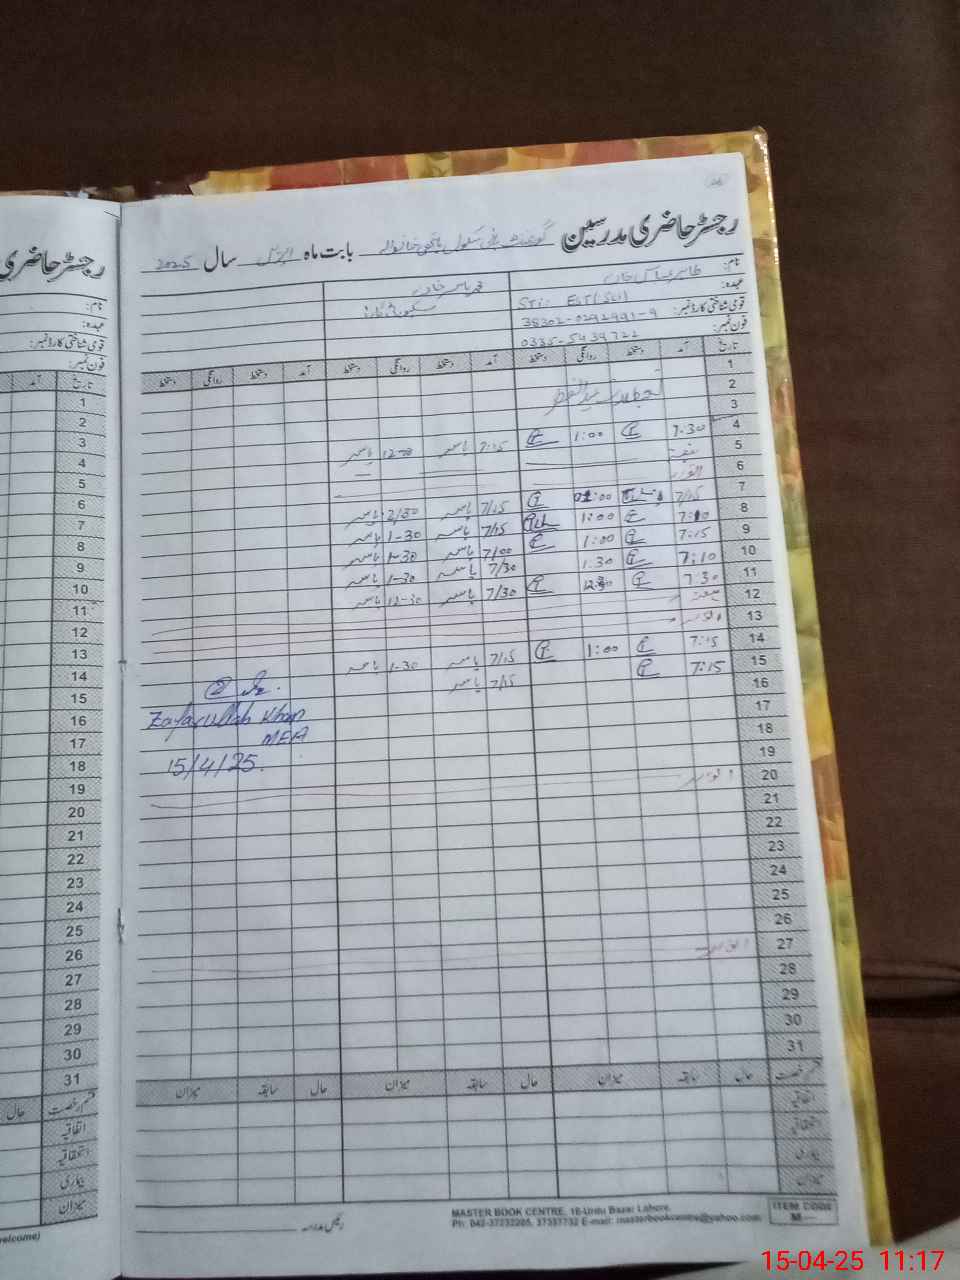 رجسٹر حاضری مدرسین گورنمنٹ ہائی سکول بابت ماہ اپریل سال 2025
نام: طاہر عباس خان
عہدہ: STi: EST(Sci)
قومی شناختی کارڈ نمبر: 38302-0292991-9
فون نمبر: 0335-5439722
تاریخ آمد دستخط روانگی دستخط آمد دستخط روانگی دستخط آمد دستخط روانگی دستخط
1
2 عید الفطر
3
4 7:30 1:00 7:15 یاسر 12-00 یاسر
5 ہفتہ
6 اتوار
7 7/15 01:00 7/15 یاسر 2/30 یاسر
8 7:10 1:00 7/15 یاسر 1-30 یاسر
9 7:15 1:00 7/00 یاسر 1-30 یاسر
10 7:10 1:30 7/30 یاسر 1-30 یاسر
11 7:30 12:30 7/30 یاسر 12-30 یاسر
12 ہفتہ
13 اتوار
14 7:15 1:00 7/15 یاسر 1-30 یاسر
15 7:15 7/15 یاسر
16
17
18
19
20 اتوار
21
22
23
24
25
26
27 اتوار
28
29
30
31
Zafarullah Khan
MEA
15/4/25.
قسم رخصت حال سابقہ میزان حال سابقہ میزان حال سابقہ میزان
اتفاقیہ
استحقاقیہ
بیماری
میزان
رئیس مدرسہ
MASTER BOOK CENTRE, 16-Urdu Bazar Lahore.
Ph: 042-37232265, 37357732 E-mail: masterbookcentre@yahoo.com
ITEM CODE
M
رجسٹر حاضری
نام:
عہدہ:
قومی شناختی کارڈ نمبر:
فون نمبر:
تاریخ آمد
1
2
3
4
5
6
7
8
9
10
11
12
13
14
15
16
17
18
19
20
21
22
23
24
25
26
27
28
29
30
31
قسم رخصت حال
اتفاقیہ
استحقاقیہ
بیماری
میزان
welcome)
15-04-25 11:17